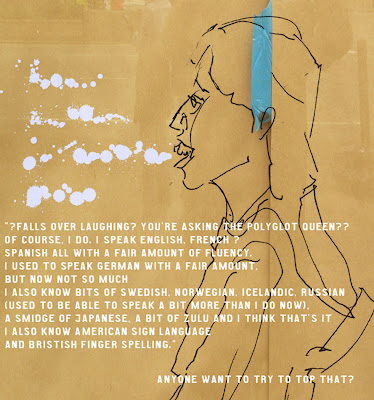 "?FALLS OVER LAUGHING? YOU'RE ASKING THE POLYGLOT QUEEN??
OF COURSE, I DO. I SPEAK ENGLISH, FRENCH ?
SPANISH ALL WITH A FAIR AMOUNT OF FLUENCY.
I USED TO SPEAK GERMAN WITH A FAIR AMOUNT,
BUT NOW NOT SO MUCH
I ALSO KNOW BITS OF SWEDISH, NORWEGIAN, ICELANDIC, RUSSIAN
(USED TO BE ABLE TO SPEAK A BIT MORE THAN I DO NOW),
A SMIDGE OF JAPANESE, A BIT OF ZULU AND I THINK THAT'S IT
I ALSO KNOW AMERICAN SIGN LANGUAGE
AND BRISTISH FINGER SPELLING."
ANYONE WANT TO TRY TO TOP THAT?